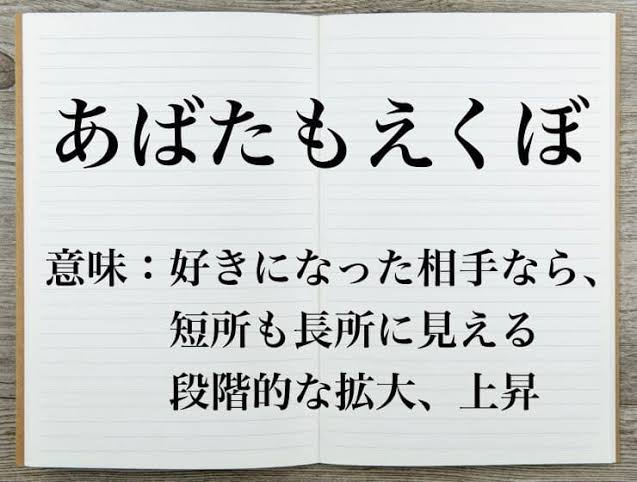 あばたもえくぼ
意味：好きになった相手なら、
短所も長所に見える
段階的な拡大、上昇